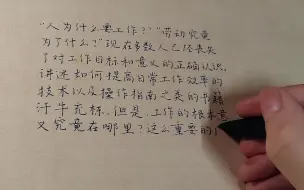 “人为什么要工作？”“劳动究竟
为了什么？”现在多数人已经丧失
了对工作目标和意义的正确认识，
讲述如何提高日常工作效率的
技术以及操作指南之类的书籍
汗牛充栋，但是，工作的根本意
义究竟在哪里？这么重要的